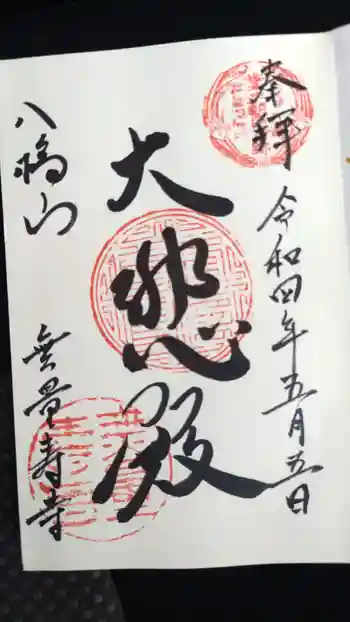 奉拝
令和四年五月五日
大悲殿
八幡山
無量寿寺